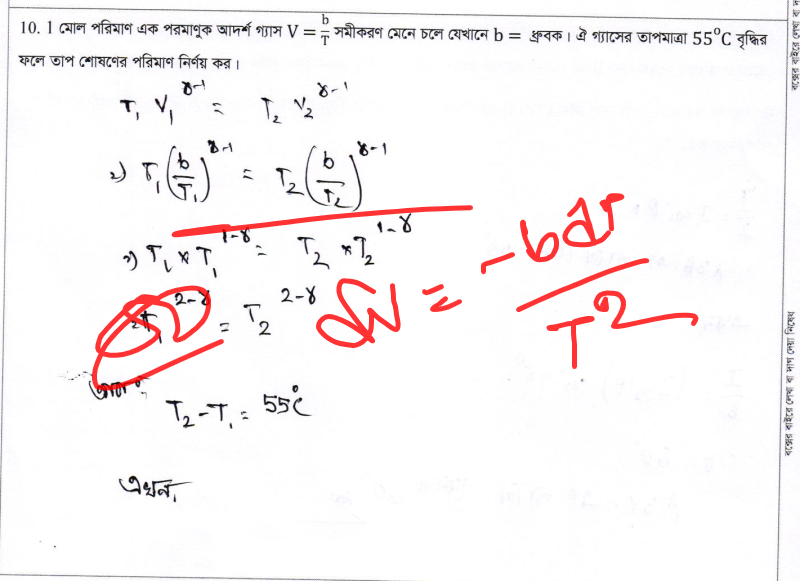 10. 1 মোল পরিমাণ এক পরমাণুক আদর্শ গ্যাস V = b/T সমীকরণ মেনে চলে যেখানে b = ধ্রুবক। ঐ গ্যাসের তাপমাত্রা 55⁰C বৃদ্ধির
ফলে তাপ শোষণের পরিমাণ নির্ণয় কর।
T₁ V₁^(γ-1) = T₂ V₂^(γ-1)
⇒ T₁ (b/T₁)^(γ-1) = T₂ (b/T₂)^(γ-1)
⇒ T₁ × T₁^(1-γ) = T₂ × T₂^(1-γ)
T₁^(2-γ) = T₂^(2-γ)
dV = -b dT / T²
T₂ - T₁ = 55°C
এখন,
বক্সের বাইরে লেখা বা দাগ দেয়া নিষেধ